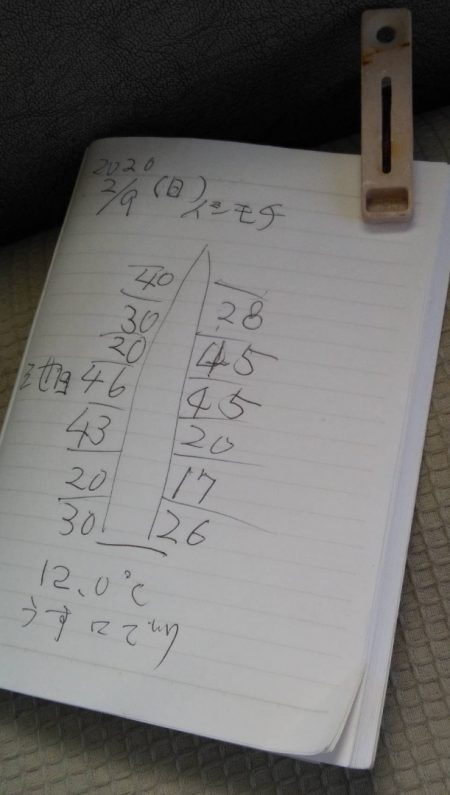 2020
2/9 (日) イシモチ
40
30
20
46
43
20
30
28
45
45
20
17
26
12.0℃
うすにごり